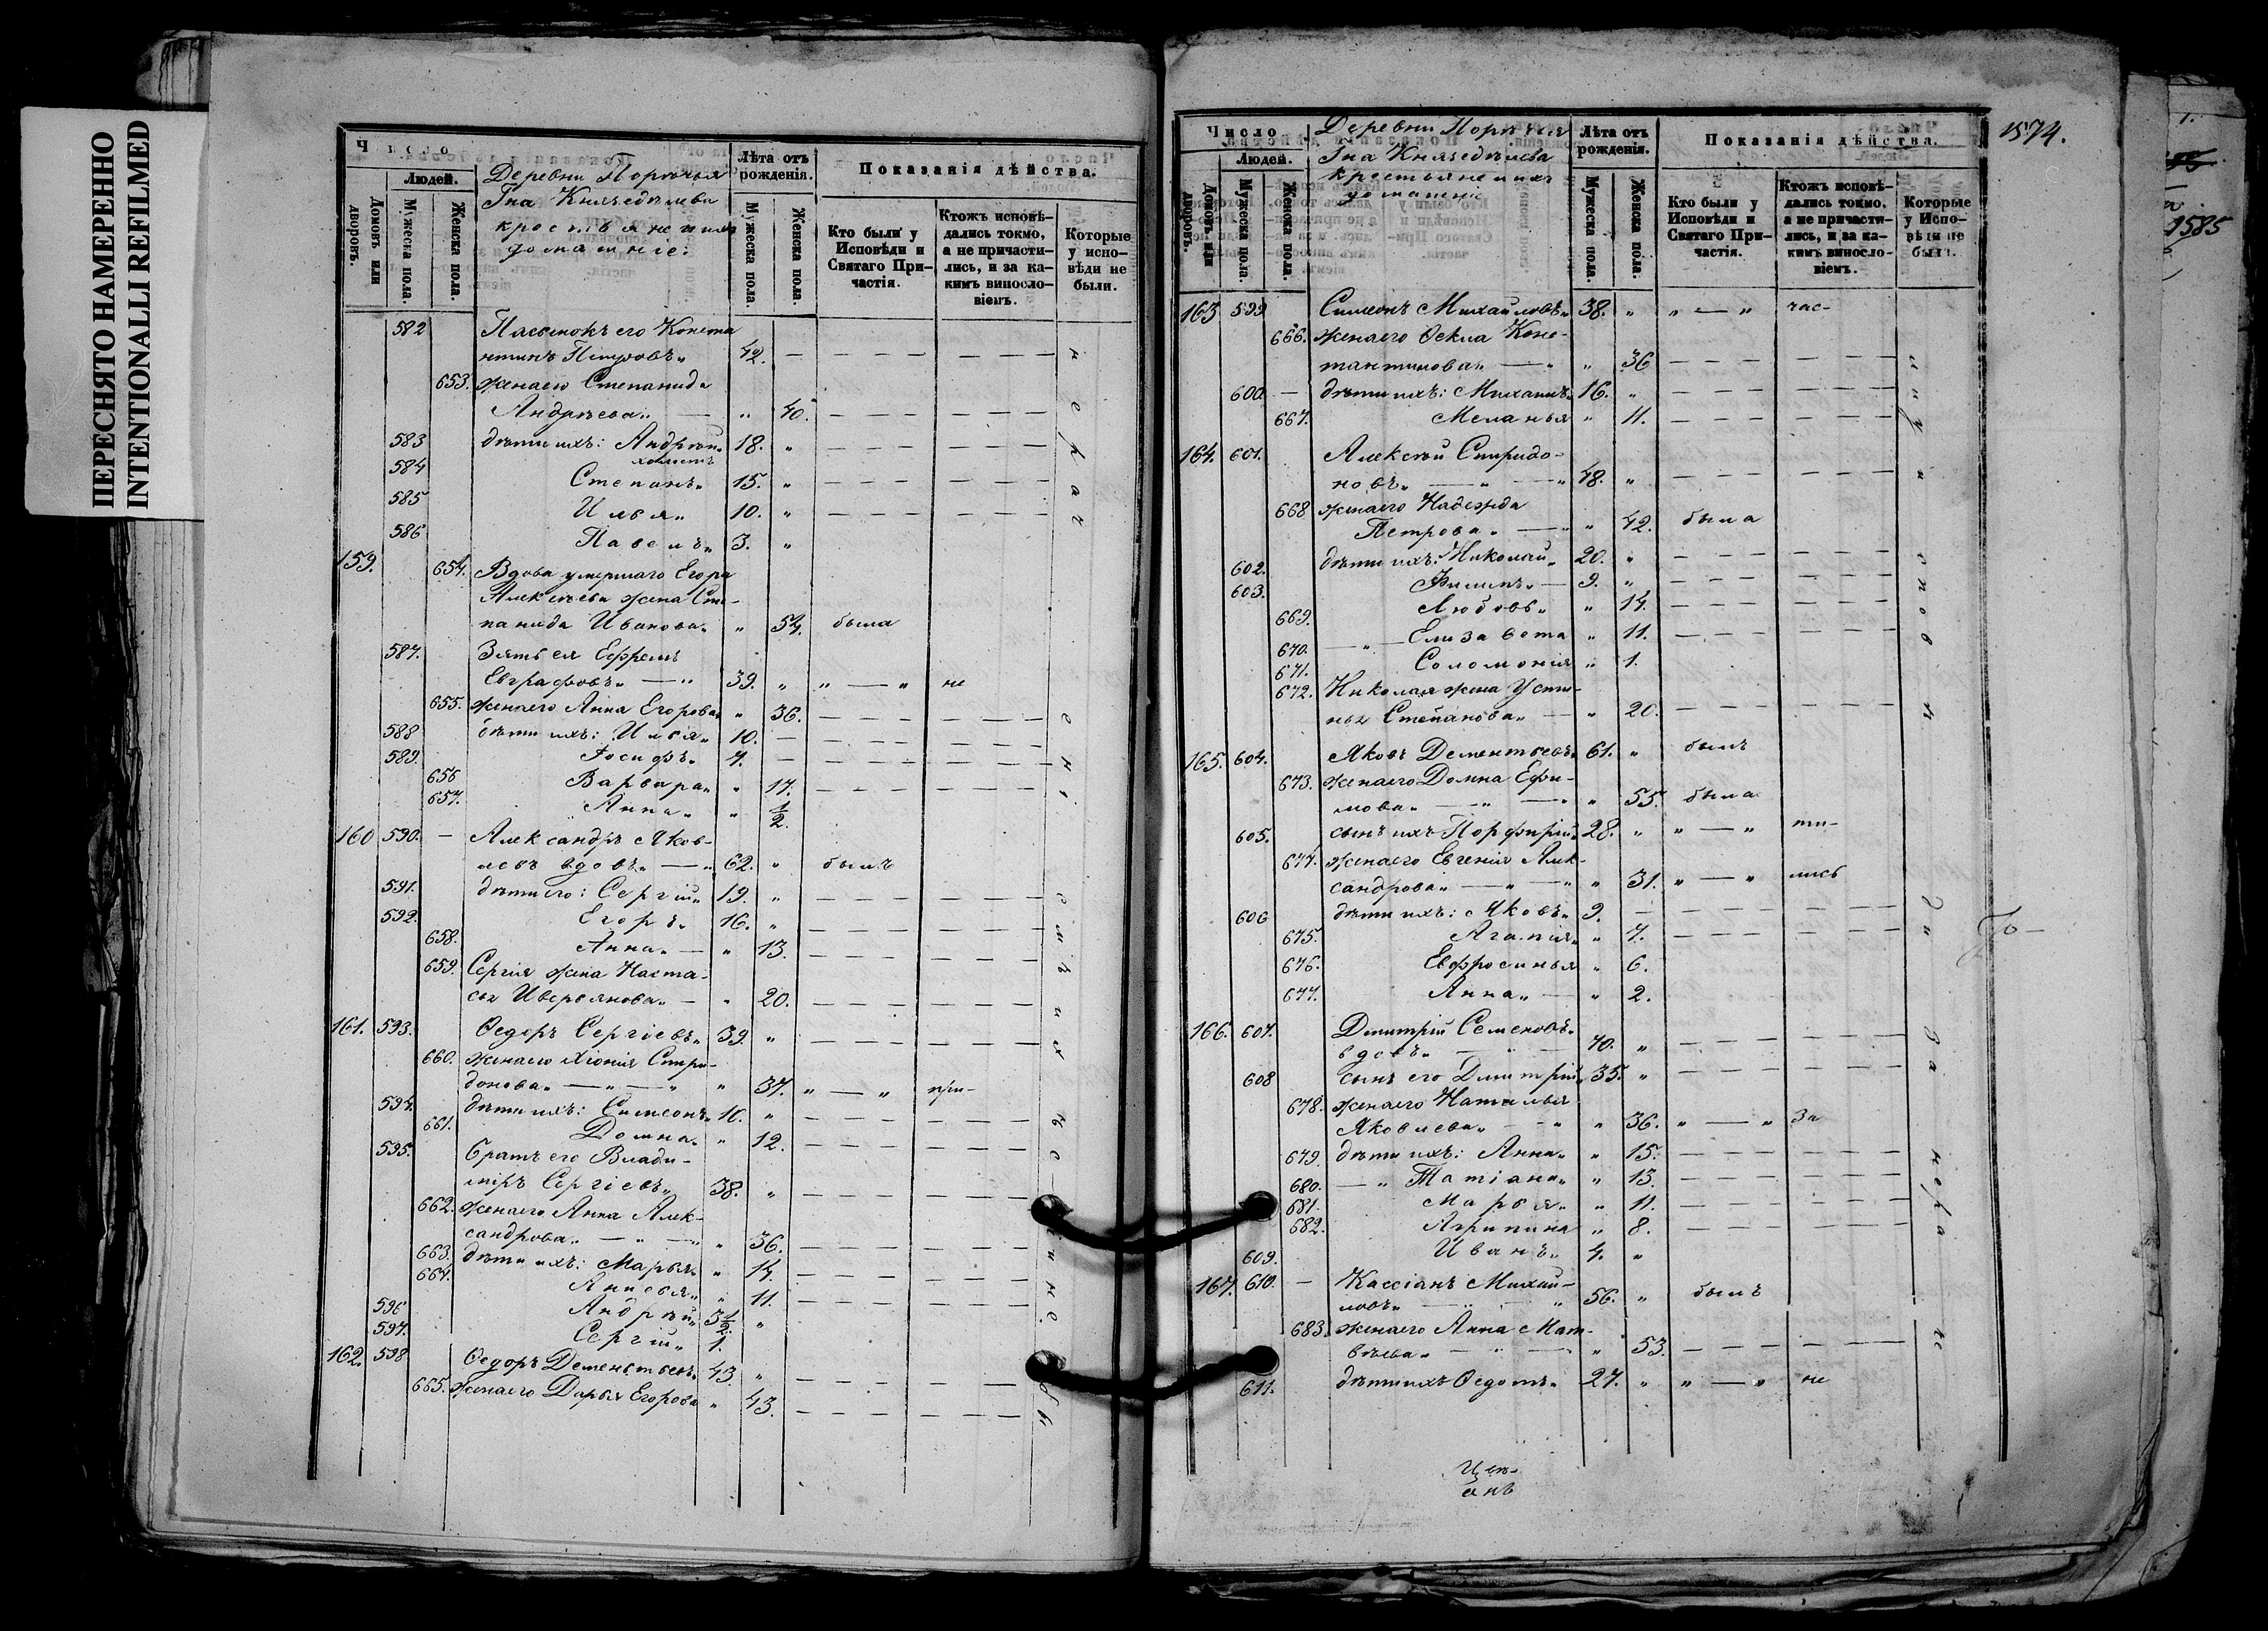 ПЕРЕСНЯТО НАМЕРЕННО
INTENTIONALLI REFILMED
Число
Людей.
Домовъ или дворовъ.
Мужеска пола.
Женска пола.
Деревни Порѣчья
Гна Княжедѣлева
крестьяне и ихъ
домашніе:
Лѣта отъ рожденія.
Мужеска пола.
Женска пола.
Показанія дѣйства.
Кто были у Исповѣди и Святаго Причастія.
Ктожъ исповѣдались токмо, а не причастились, и за какимъ винословіемъ.
Которые у исповѣди не были.
582 Пасынокъ его Конста
нтинъ Петровъ„ 42. —
653. жена его Степанида
Андрѣева„ — „ 40.
583 дѣти ихъ: Андрей„ 18. „
холостъ
584 Степанъ„ 15. „
585 Илья„ 10. „
586 Павелъ„ 3. „
159. 654. Вдова умершаго Егора
Алексѣева жена Сте-
панида Иванова„ „ 54. была
587. Зять ея Ефремъ
Евграфовъ„ — „ 39. „ „ — „ не
655. жена его Анна Егорова„ „ 36.
588 дѣти ихъ: Илья„ 10. —
589. Іосифъ„ 7. —
656 Варвара„ „ 17.
657. Анна„ „ 1/2.
160 590. — Александръ Яков-
левъ вдовъ„ — „ 62. „ былъ
591. дѣти его: Сергій„ 19. „
592. Егоръ„ 16. „
658. Анна„ — „ 13.
659. Сергія жена Настась
сья Аверьянова„ — „ 20.
161. 593. Ѳедоръ Сергіевъ„ 39. „
660. жена его Хіонія Спири-
донова„ — „ — „ „ 37. „ — „ при-
594. дѣти ихъ: Симеонъ„ 16. „
661. Домна„ „ 12.
595. братъ его Влади-
міръ Сергіевъ„ 38. „
662. жена его Анна Алек-
сандрова„ — „ — „ „ 36.
663. дѣти ихъ: Марья„ „ 14.
664. Анисья„ „ 11.
596 Андрей„ 3 1/2. „
597. Сергій„ 1.
162. 598 Ѳедоръ Дементьевъ„ 43. „
665. жена его Дарья Егорова „ 43.
1574.
Число
Людей.
Домовъ или дворовъ.
Мужеска пола.
Женска пола.
Деревни Порѣчья
Гна Княжедѣлева
крестьяне и ихъ
домашніе
Лѣта отъ рожденія.
Мужеска пола.
Женска пола.
Показанія дѣйства.
Кто были у Исповѣди и Святаго Причастія.
Ктожъ исповѣдались токмо, а не причастились, и за какимъ винословіемъ.
Которые у Исповѣди не были.
163 599 Симеонъ Михайловъ„ 38. „ „ — „ час-
666. жена его Ѳекла Конс-
тантинова„ — „ „ 36
600 — дѣти ихъ: Михаилъ„ 16. „
667. Меланья „ 11.
164. 601. Алексѣй Спиридо-
новъ„ — „ — „ 48. „
668 жена его Надежда
Петрова„ — „ 42. была
602. дѣти ихъ: Николай„ 20. „
603. Филипъ„ — 9. „
669. Любовь„ „ 14.
670. — „ — Елизавета „ 11.
671. Соломонія „ 1.
672. Николая жена Усти-
нья Степанова„ — „ 20.
165. 604. Яковъ Дементьевъ„ 61. „ былъ
673. жена его Домна Ефи-
мова„ — „ — „ „ 55. была
605. сынъ ихъ Порфирій„ 28. „ „ — „ ти-
674. жена его Евгенія Алек-
сандрова„ — „ — „ „ 31. „ — „ лись
606 дѣти ихъ: Яковъ„ 9. —
675. Агапія„ „ 7.
676. Евфросинья „ 6.
677. Анна„ — „ 2.
166. 607. Дмитрій Семеновъ„
вдовъ„ — „ — 70. „
608 сынъ его Дмитрій„ 35. „
678. жена его Наталья
Яковлева„ — „ „ 36. „ — „ За
679. дѣти ихъ: Анна„ „ 15.
680. — „ Татіана„ „ 13.
681. Марья„ „ 11.
682. Агрипина „ 8.
609. Иванъ„ 4. „
167. 610. — Кассіанъ Михай-
ловъ„ — „ — „ 56. „ былъ
683. жена его Анна Мат-
вѣева„ — „ — „ „ 53.
611. дѣти ихъ Ѳедотъ„ 27. „ „ — „ не
1585